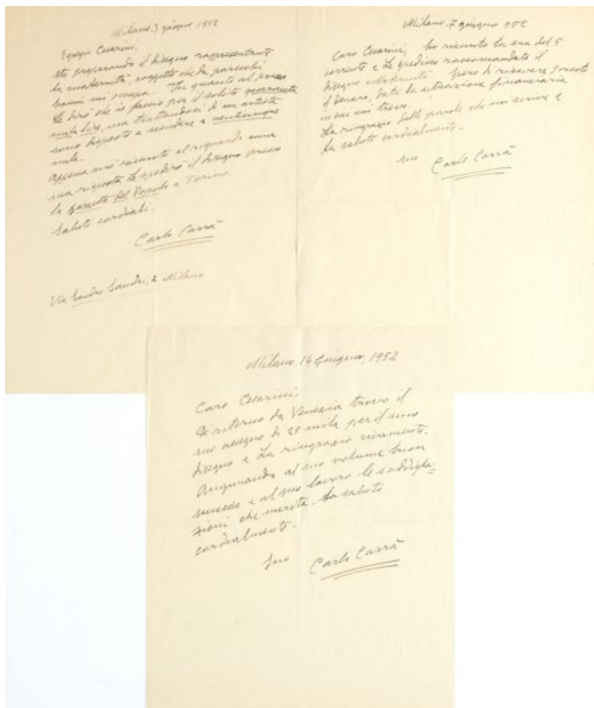 Milano, 3 giugno 1952
Egregio Cesarini,
Sto preparando il disegno rappresentante
la maternità, soggetto che da parecchi
mi occupa. In quanto al prezzo
Le dirò che io faccio per il solito quaranta
mila lire, ma trattandosi di un artista
sono disposto a vendere a venticinque
mila.
Appena avrò ricevuto al riguardo una
sua risposta Le spedirò il disegno presso
la Gazzetta del Popolo a Torino.
Saluti cordiali.
Carlo Carrà
Via Sandro Sandri, 2 Milano
Milano, 7 giugno 952
Caro Cesarini, ho ricevuto la sua del 5
corrente e Le spedisco raccomandato il
disegno "Maternità". Spero di ricevere presto
il denaro, data la situazione finanziaria
in cui mi trovo.
La ringrazio delle parole che mi scrive e
La saluto cordialmente.
Suo Carlo Carrà
Milano, 14 Giugno, 1952
Caro Cesarini,
Di ritorno da Venezia trovo il
suo assegno di 25 mila per il mio
disegno e La ringrazio vivamente.
Augurando al suo volume buon
successo e al suo lavoro le soddisfa-
zioni che merita, La saluto
cordialmente.
Suo Carlo Carrà